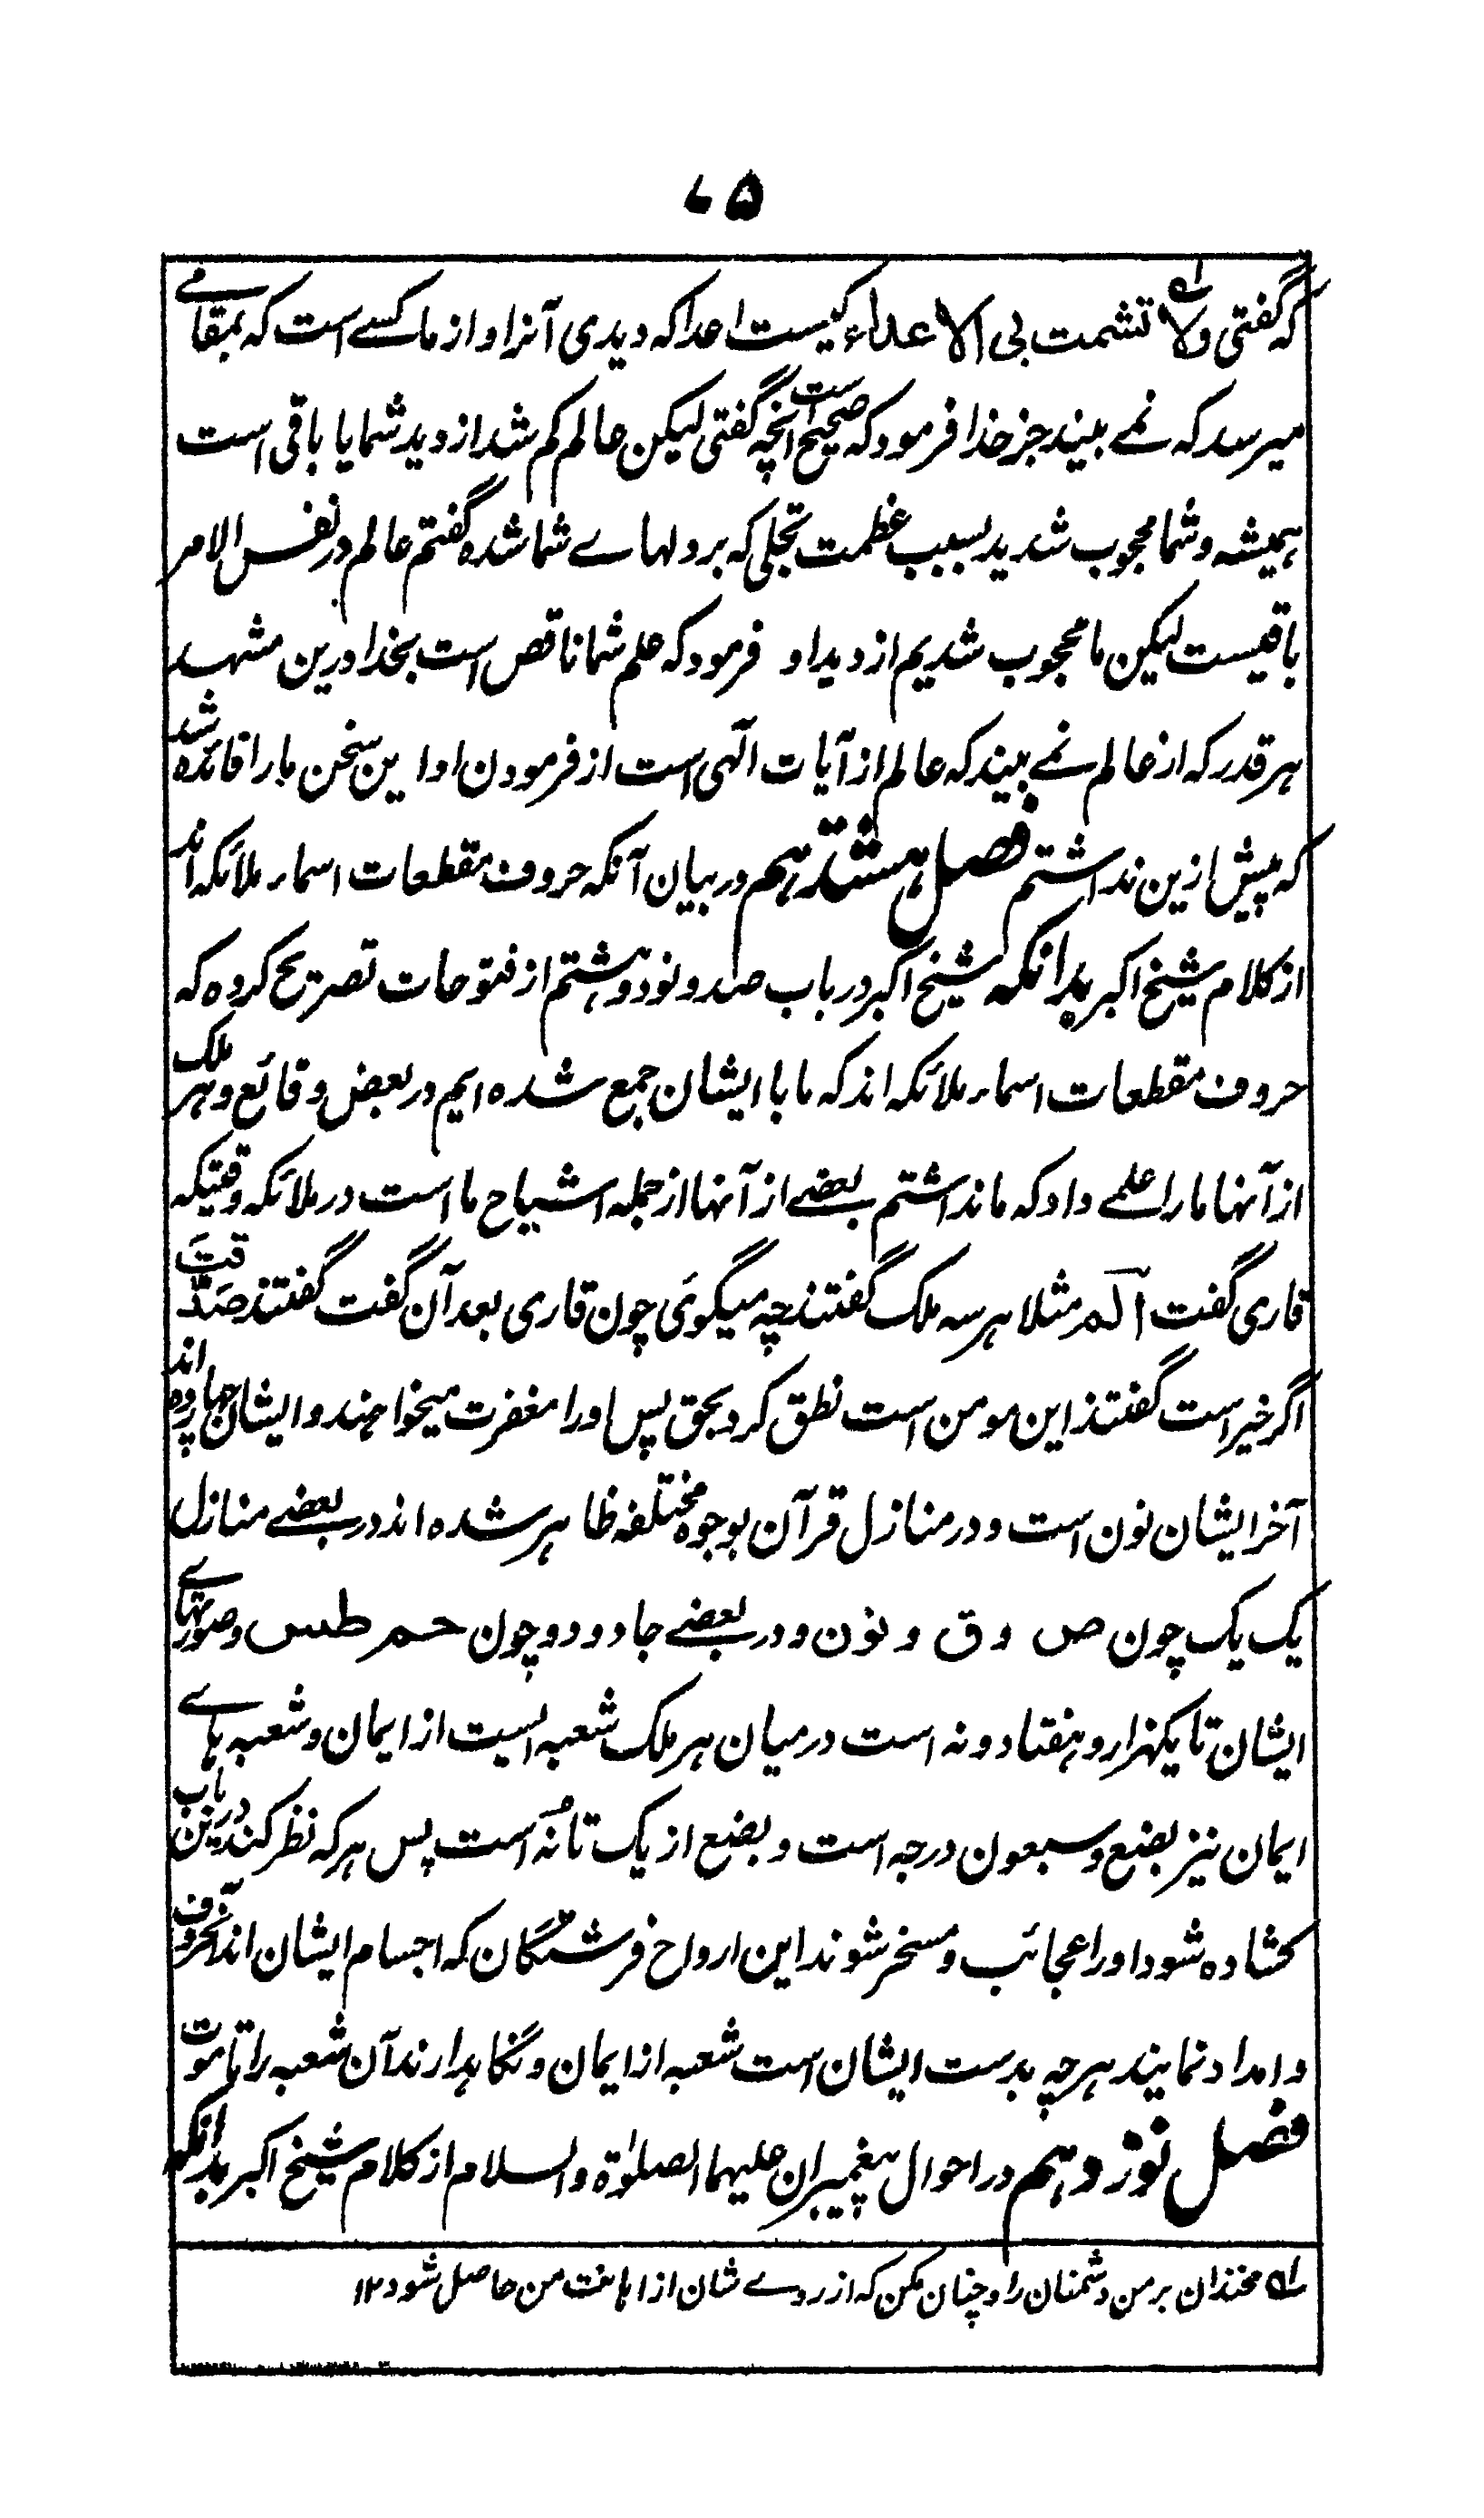 ۷۵
که گفتی ولا تشمت بی الاعداء کیست اعدا که دیدی آنرا و از ما کسے است که بمقامے
میرسد که نمے بیند جز خدا فرمود که صحیح است انچه گفتی لیکن عالم کم شد از دید شما یا باقی است
همیشه و شما محجوب شدید بسبب عظمت تجلی که بر دلهاے شما شده گفتم عالم در نفس الامر
باقیست لیکن ما محجوب شدیم از دید او فرمود که علم شما ناقص است بخدا درین مشهد
هر قدر که از عالم نمے بیند که عالم از آیات الٰهی است از فرمودن او این سخن مارا فائده شد
که پیش ازین نداشتم فصل هشتدهم در بیان آنکه حروف مقطعات اسماء ملائکه اند
از کلام شیخ اکبر بدانکه شیخ اکبر در باب صد و نود و هشتم از فتوحات تصریح کرده که
حروف مقطعات اسماء ملائکه اند که ما با ایشان جمع شده ایم در بعض وقائع و هر ملک
از آنها مارا علمے داد که ما نداشتم بعضے از آنها از جمله اشیاح ما است در ملائکه وقتیکه
قاری گفت آلم مثلا هر سه ملک گفتند چه میگوئی چون قاری بعد آن گفت گفتند صدّقتَ
اگر خیر است گفتند این مومن است نطق کرد بحق پس اورا مغفرت میخواهند و ایشان چهارده اند
آخر ایشان نون است و در منازل قرآن بوجوه مختلفه ظاهر شده اند در بعضے منازل
یک یک چون ص و ق و نون و در بعضے جا دو دو چون حم طس و صورتهاے
ایشان تا یکهزار و هفتاد و نه است درمیان هر ملک شعبه ایست از ایمان و شعبه هاے
ایمان نیز بضع و سبعون درجه است و بضع از یک تا نُه است پس هر که نظر کند درین باب
کشاده شود اورا عجائب و مسخر شوند این ارواح فرشتگان که اجسام ایشان اند آنحروف
و امداد نمایند هر چه بدست ایشان است شعبه از ایمان و نگاهدارند آن شعبه را تا موت
فصل نوزدهم در احوال پیغمبران علیهما الصلوٰة والسلام از کلام شیخ اکبر بدانکه
له مخندان بر من دشمنان را و چنان مکن که از روے شان از اهانت من حاصل شود ۱۲